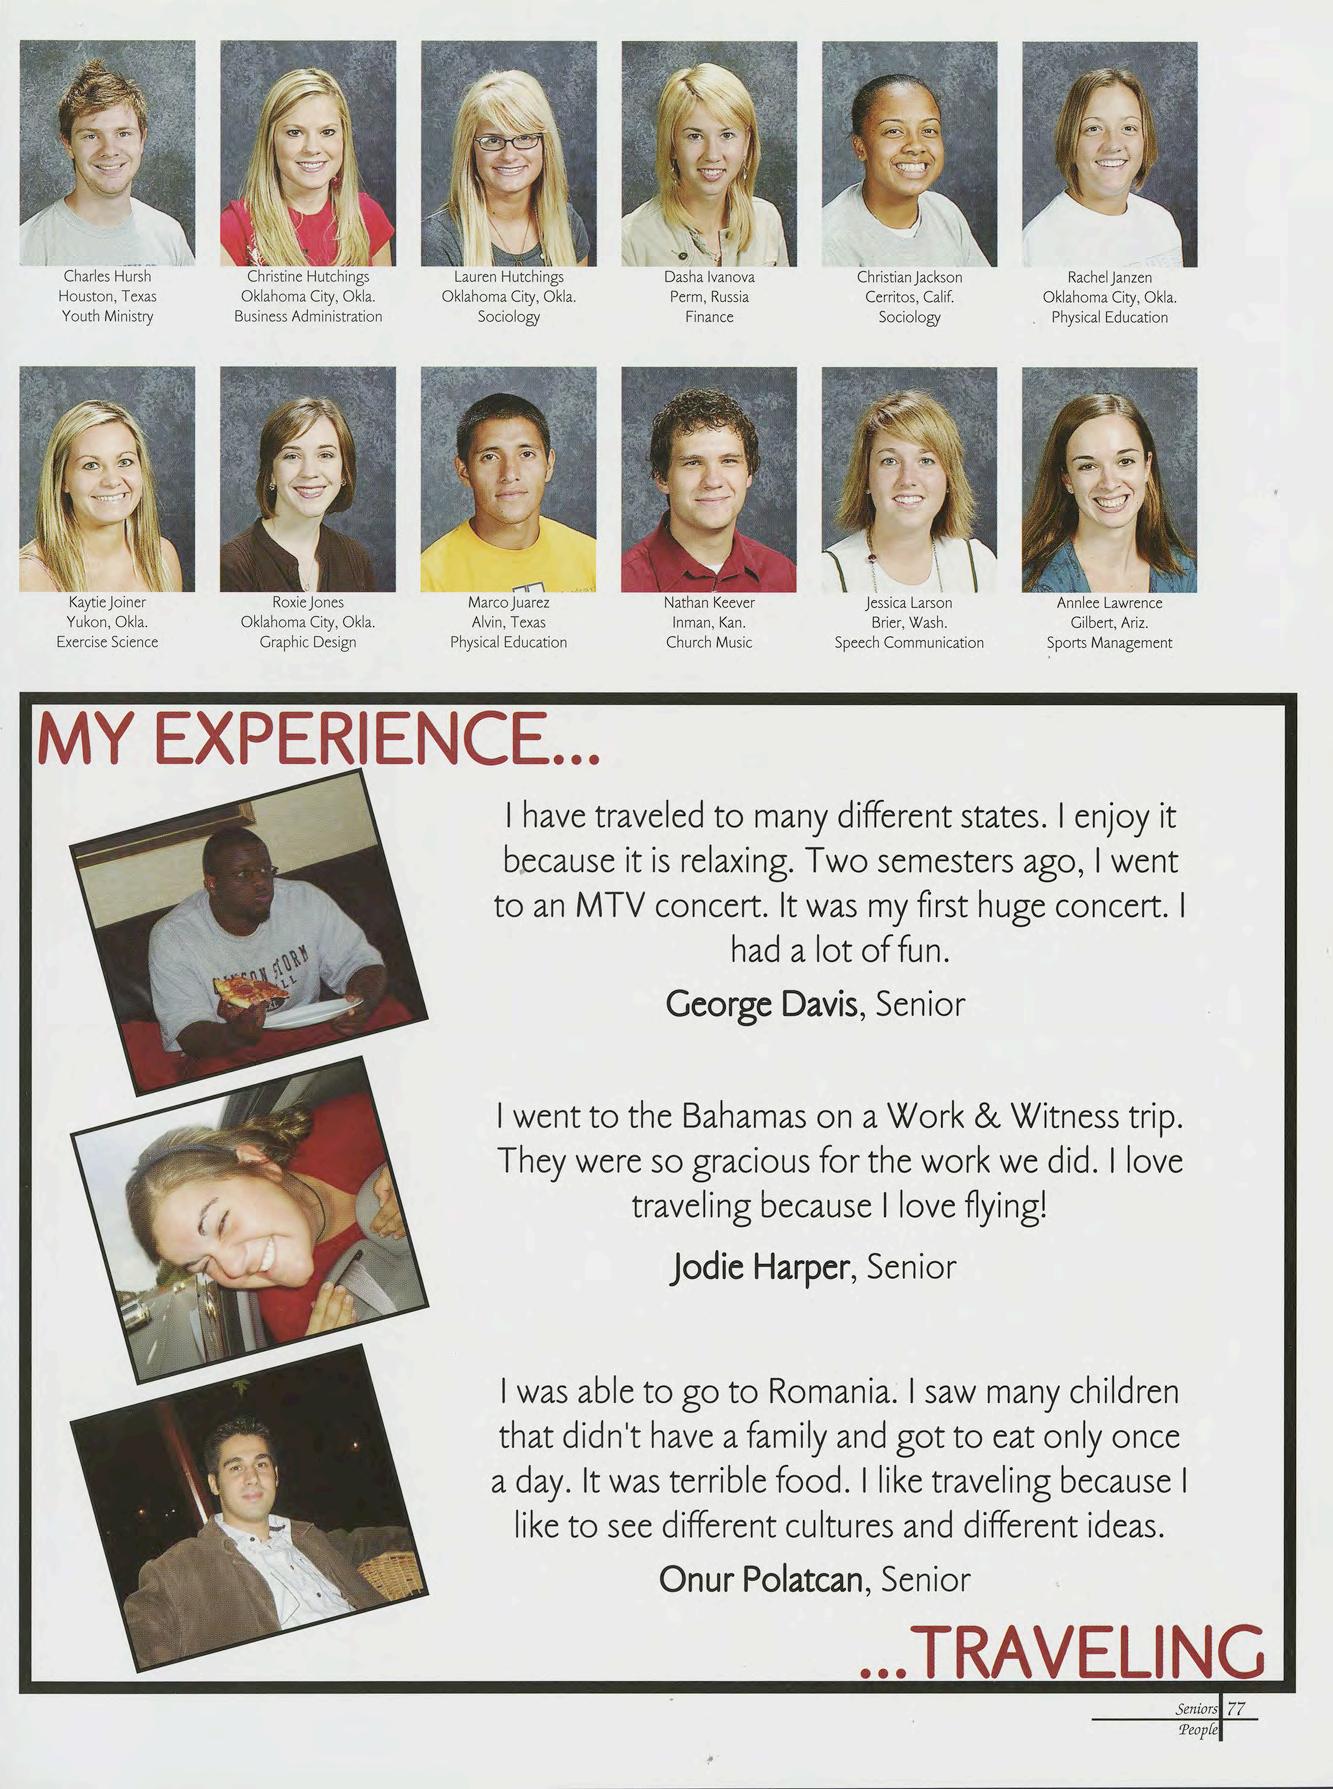 Charles Hursh
Houston, Texas
Youth Ministry
Christine Hutchings
Oklahoma City, Okla.
Business Administration
Lauren Hutchings
Oklahoma City, Okla.
Sociology
Dasha Ivanova
Perm, Russia
Finance
Christian Jackson
Cerritos, Calif.
Sociology
Rachel Janzen
Oklahoma City, Okla.
Physical Education
Kaytie Joiner
Yukon, Okla.
Exercise Science
Roxie Jones
Oklahoma City, Okla.
Graphic Design
Marco Juarez
Alvin, Texas
Physical Education
Nathan Keever
Inman, Kan.
Church Music
Jessica Larson
Brier, Wash.
Speech Communication
Annlee Lawrence
Gilbert, Ariz.
Sports Management
MY EXPERIENCE...
I have traveled to many different states. I enjoy it
because it is relaxing. Two semesters ago, I went
to an MTV concert. It was my first huge concert. I
had a lot of fun.
George Davis, Senior
STORM
I went to the Bahamas on a Work & Witness trip.
They were so gracious for the work we did. I love
traveling because I love flying!
Jodie Harper, Senior
I was able to go to Romania. I saw many children
that didn't have a family and got to eat only once
a day. It was terrible food. I like traveling because I
like to see different cultures and different ideas.
Onur Polatcan, Senior
...TRAVELING
Seniors 77
People